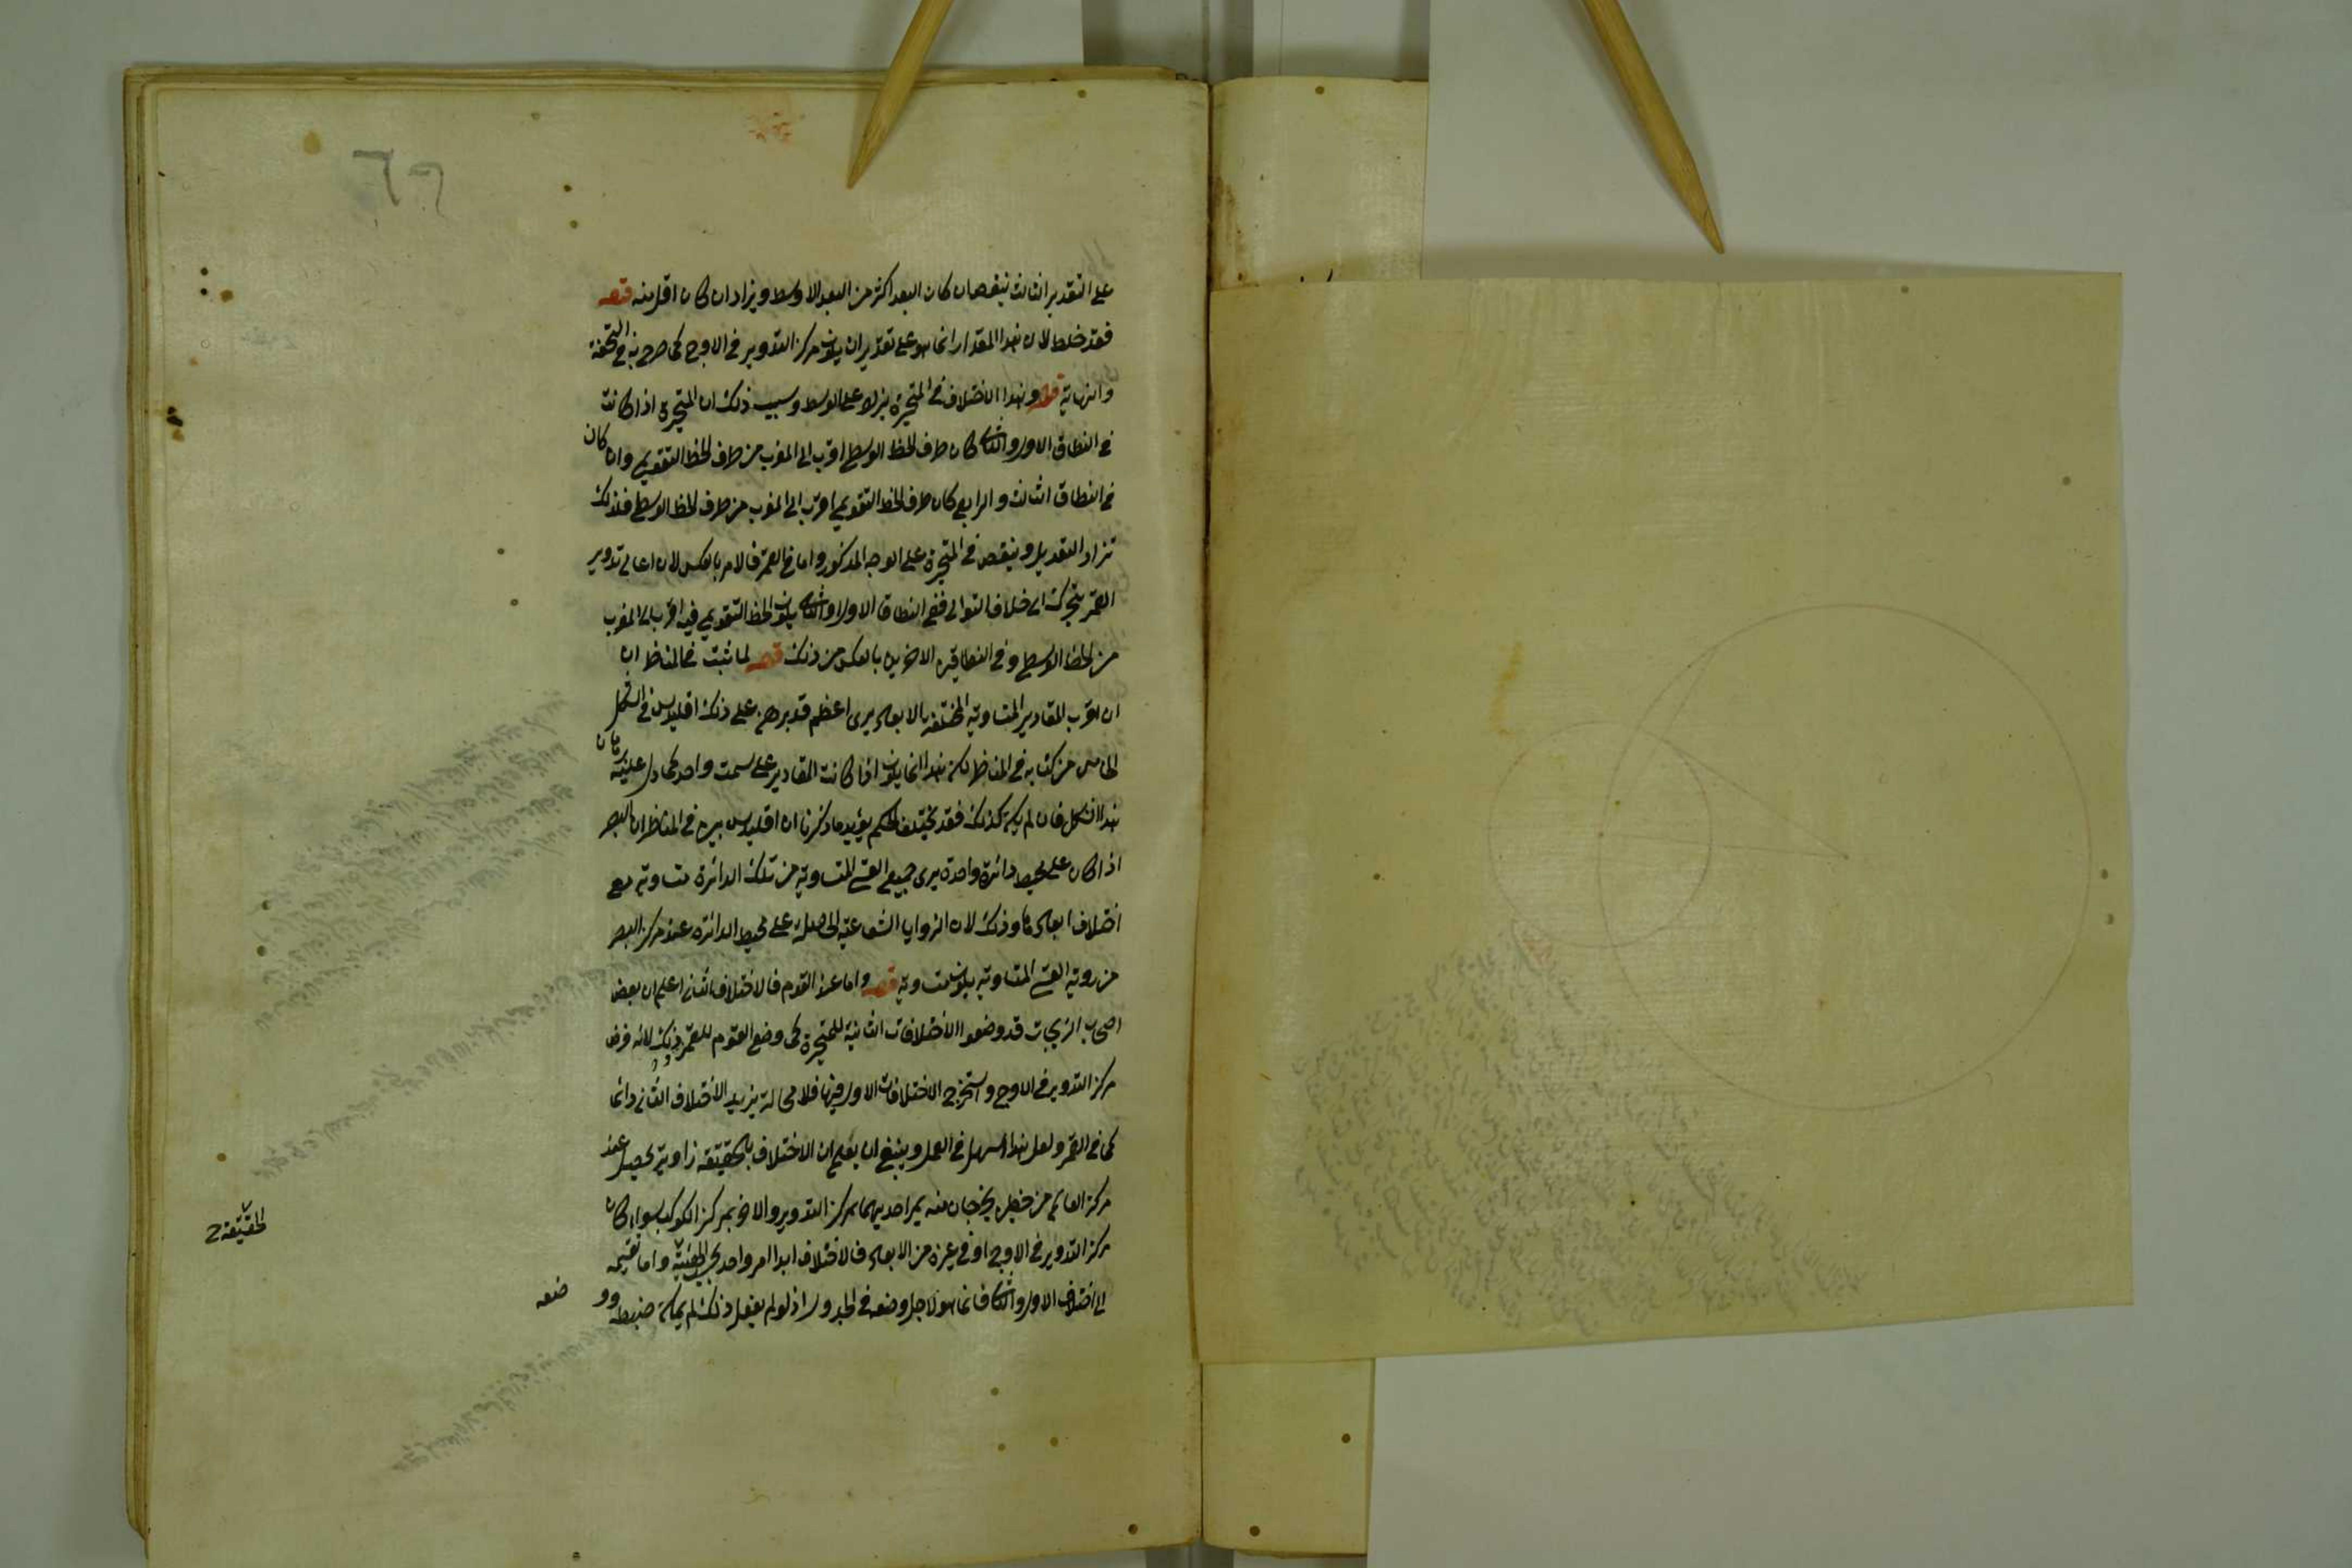 على التقدير الثالث ينقص ان كان البعد اكثر من البعد الاوسط ويزاد ان كان اقل منه قوله
فقد خلط لان هذا المقدار انما هو على تقدير ان يكون مركز التدوير فى الاوج كما صرح به فى التحفة
والنهاية قوله وهذا الاختلاف فى المتحيرة يزاد على الوسط وسبب ذلك ان المتحيرة اذا كانت
فى النطاق الاول والثانى كان طرف الخط الوسطى اقرب الى المغرب من طرف الخط التقويمى وان كان
فى النطاق الثالث والرابع كان طرف الخط التقويمى اقرب الى المغرب من طرف الخط الوسطى فلذلك
تزاد التعديل وينقص فى المتحيرة على الوجه المذكور واما فى القمر فالامر بالعكس لان اعالى تدوير
القمر يتحرك الى خلاف التوالى ففى النطاق الاول والثانى يكون الخط التقويمى فيه اقرب الى المغرب
من الخط الوسطى وفى النطاقين الاخيرين بالعكس من ذلك قوله لما ثبت فى المناظر ان
ان اقرب المقادير المتساوية المختلفة بالابعاد يرى اعظم قد برهن على ذلك اقليدس فى الشكل
الخامس من كتابه فى المناظر لكن هذا انما يكون اذا كانت المقادير على سمت واحد كما دل عليه برهان
هذا الشكل فان لم يكن كذلك فقد يختلف الحكم يؤيد ما ذكرنا ان اقليدس بين فى المناظر ان البصر
اذا كان على محيط دائرة واحدة يرى جميع القسى المتساوية من تلك الدائرة متساوية مع
اختلاف ابعادها وذلك لان الزوايا الشعاعية الحاصلة على محيط الدائرة عند مركز البصر
من روية القسى المتساوية يكون متساوية قوله واما عند القوم فالاختلاف الثانى اعلم ان بعض
اصحاب الزيجات قد وضعوا الاختلافات الثانية للمتحيرة كما وضع القوم للقمر وذلك لانه فرض
مركز التدوير فى الاوج واستخرج الاختلافات الاول فيها فلا محالة يزيد الاختلاف الثانى دائما
كما فى القمر ولعل هذا اسهل فى العمل وينبغى ان يعلم ان الاختلاف بالحقيقة زاوية يحصل عند
مركز العالم من خطين يخرجان منه يمر احديهما بمركز التدوير والاخر بمركز الكوكب سواء كان
مركز التدوير فى الاوج او فى غيره من الابعاد فالاختلاف ابدا امر واحد بحسب الحقيقة واما تقسيمه
الى اختلاف الاول والثانى فانما هو لاجل وضعه فى الجدول اذ لو لم يفعل ذلك لم يمكن ضبطه وو
ضعه
الحقيقة